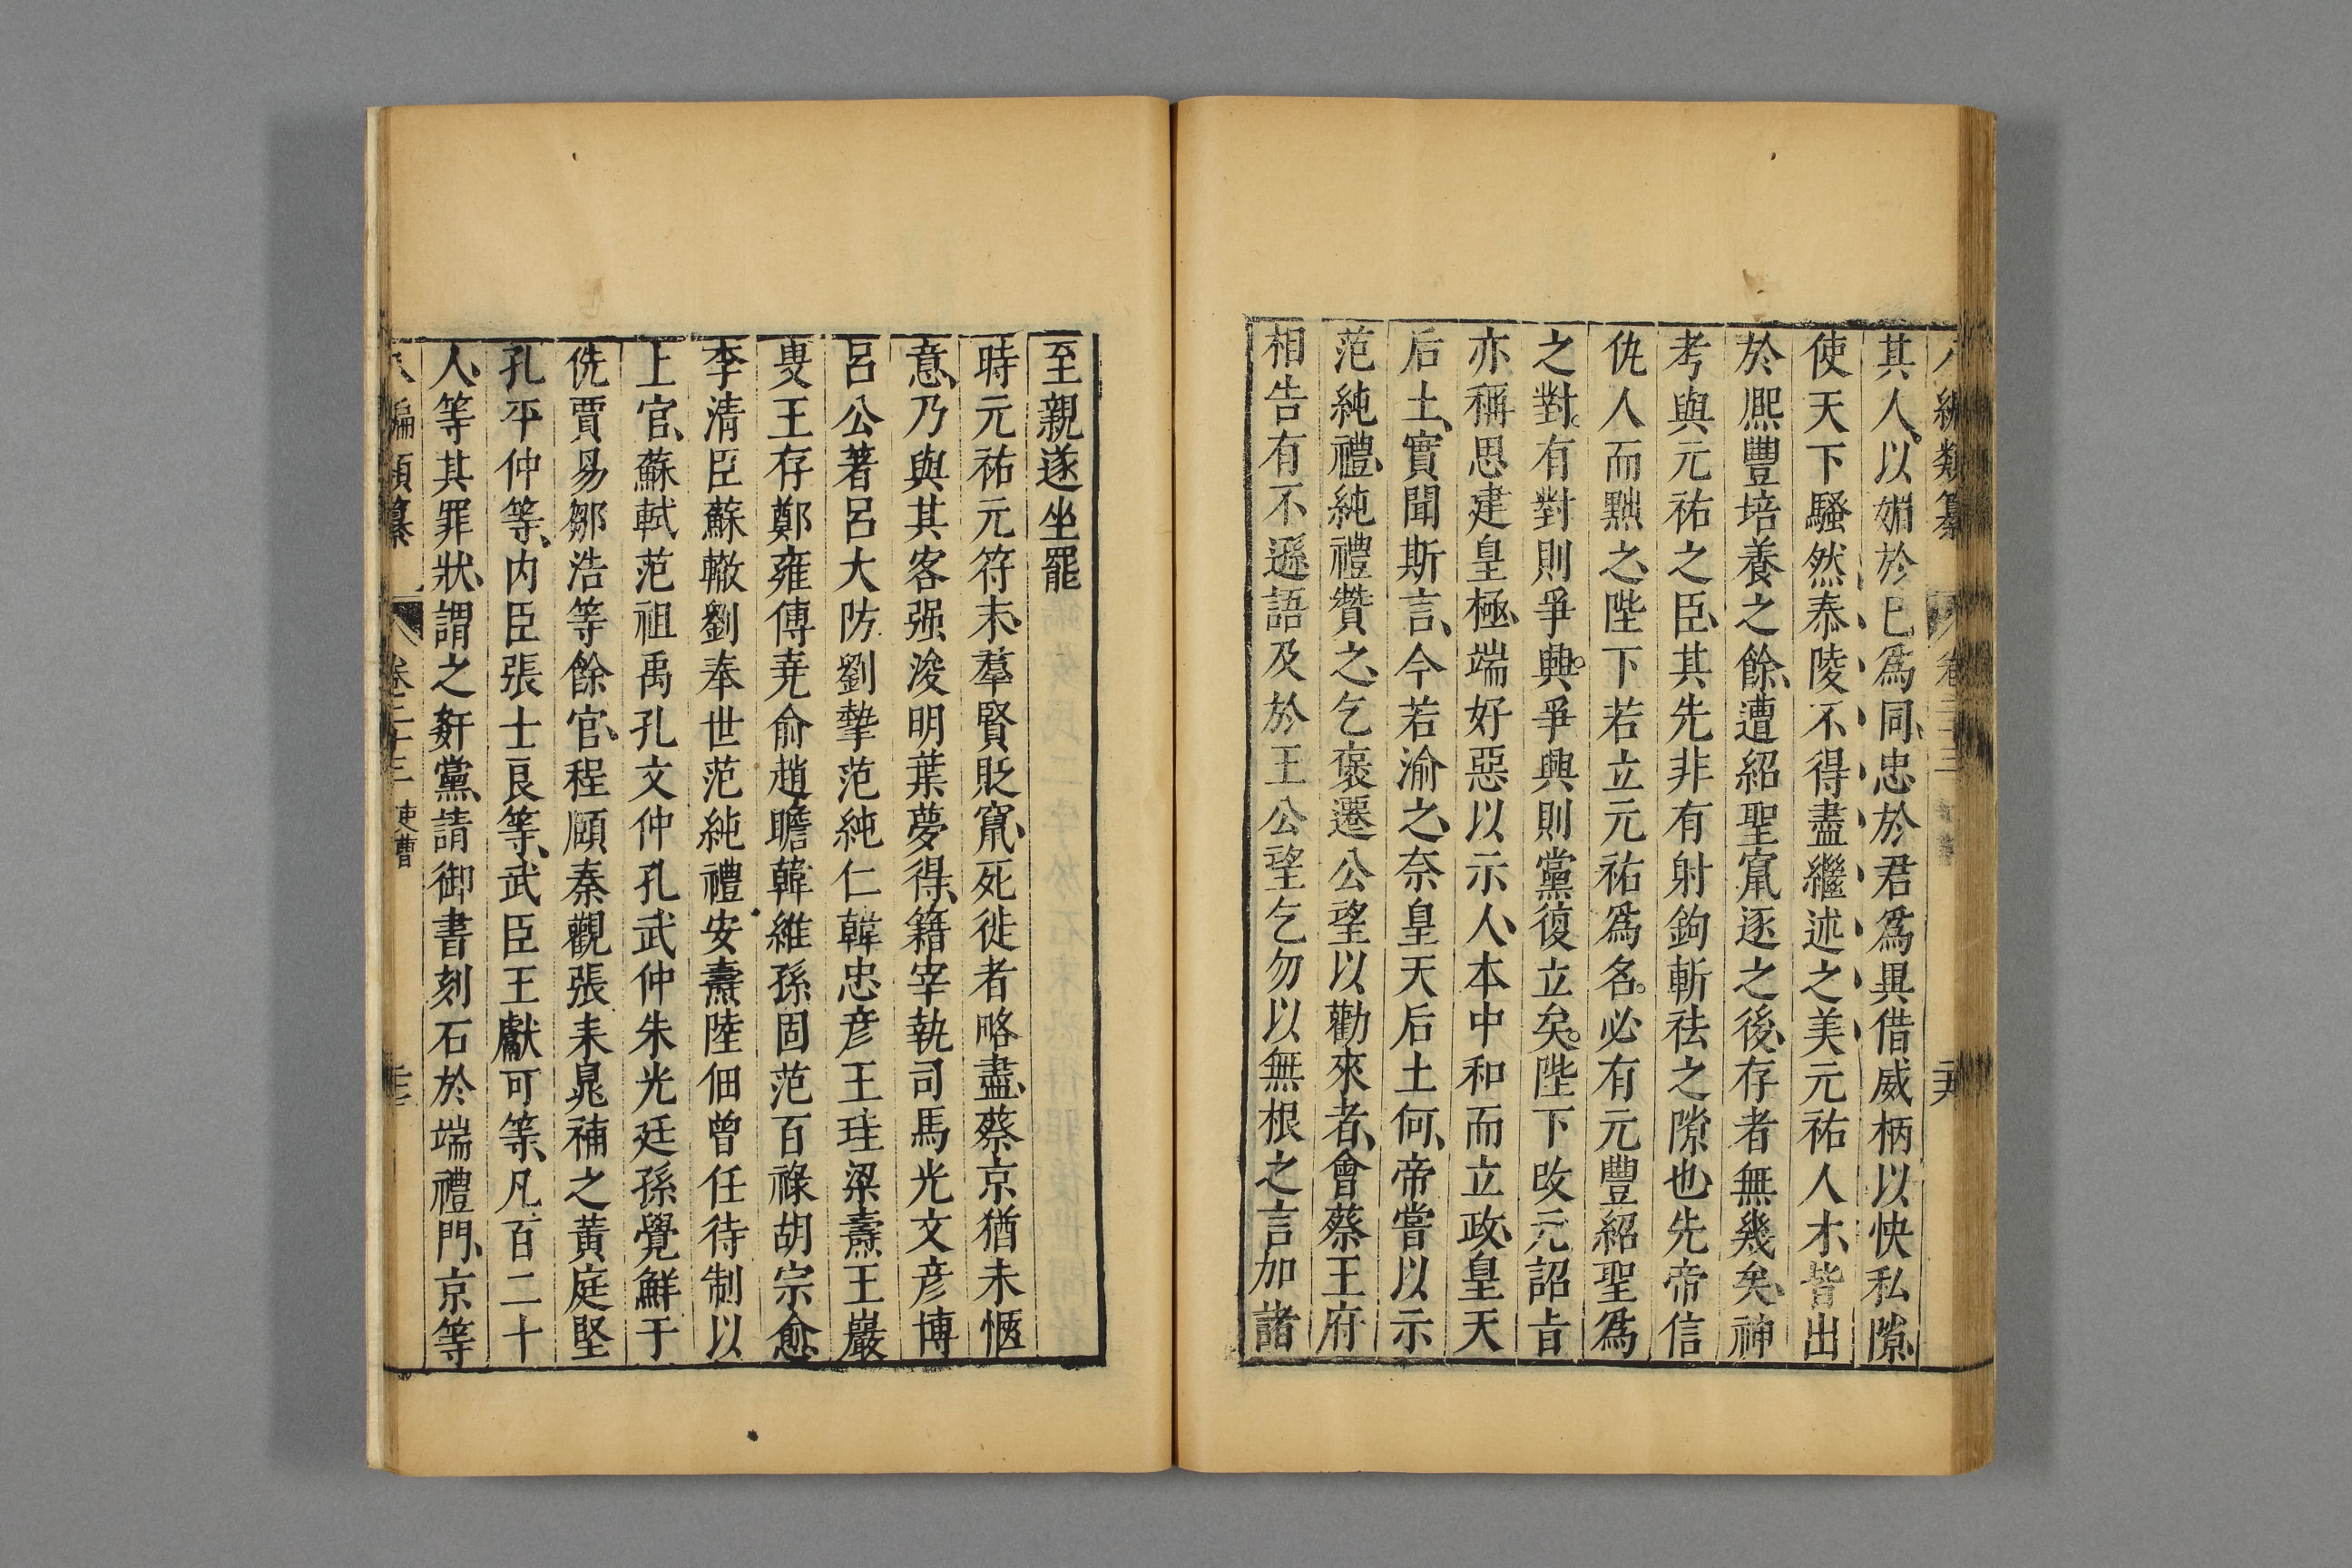 八編類纂 卷二十三 二十六
其人以媚於已爲同忠於君爲異借威柄以快私隙
使天下騷然泰陵不得盡繼述之美元祐人才皆出
於熈豐培養之餘遭紹聖竄逐之後存者無幾矣神
考與元祐之臣其先非有射鉤斬祛之隙也先帝信
仇人而黜之陛下若立元祐爲名必有元豐紹聖爲
之對有對則爭興爭興則黨復立矣陛下改元詔旨
亦稱思建皇極端好惡以示人本中和而立政皇天
后土實聞斯言今若渝之奈皇天后土何帝嘗以示
范純禮純禮贊之乞褒遷公望以勸來者會蔡王府
相告有不遜語及於王公望乞勿以無根之言加諸
至親遂坐罷
時元祐元符末羣賢貶竄死徙者略盡蔡京猶未愜
意乃與其客强浚明葉夢得籍宰執司馬光文彦博
呂公著呂大防劉摯范純仁韓忠彦王珪梁燾王巖
叟王存鄭雍傅尭俞趙瞻韓維孫固范百祿胡宗愈
李清臣蘇轍劉奉世范純禮安燾陸佃曾任待制以
上官蘇軾范祖禹孔文仲孔武仲朱光廷孫覺鮮于
侁賈易鄒浩等餘官程頤秦觀張耒晁補之黃庭堅
孔平仲等內臣張士良等武臣王獻可等凡百二十
人等其罪狀謂之姧黨請御書刻石於端禮門京等
八編類纂 卷二十三 吏曹